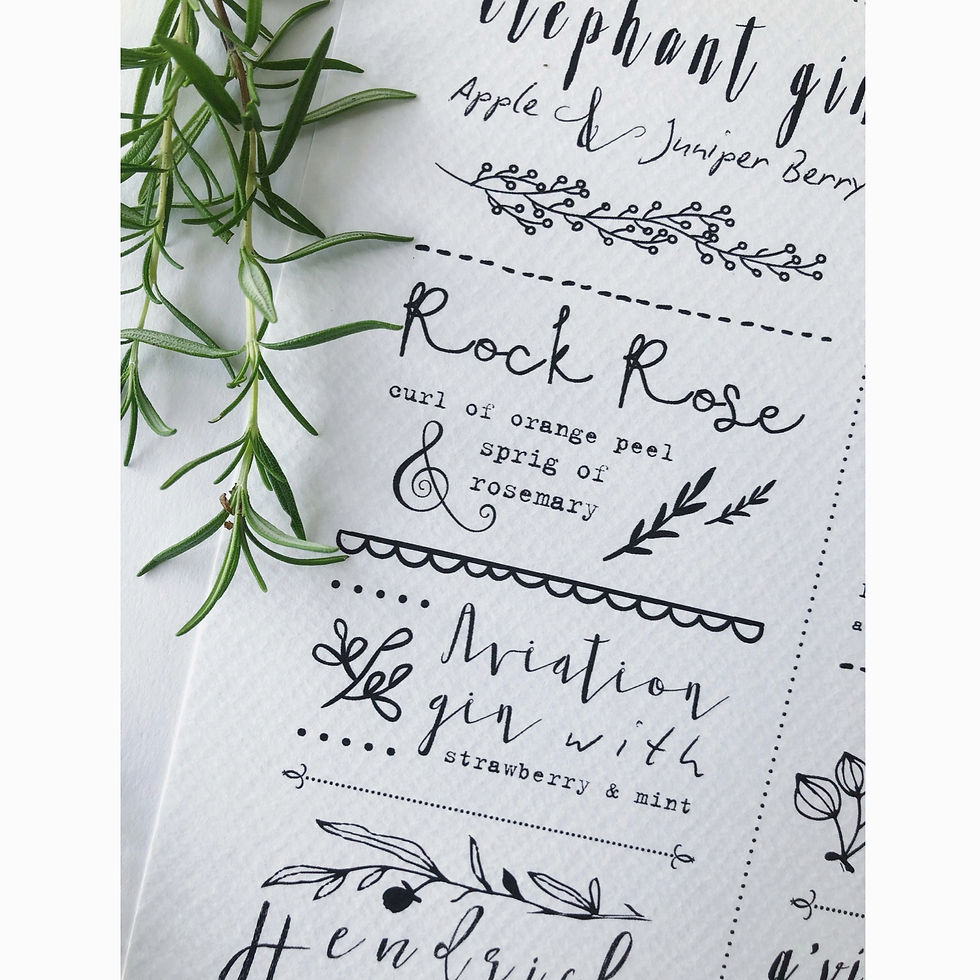 elephant gin
Apple & Juniper Berry
Rock Rose
curl of orange peel
& sprig of
rosemary
Aviation
gin with
strawberry & mint